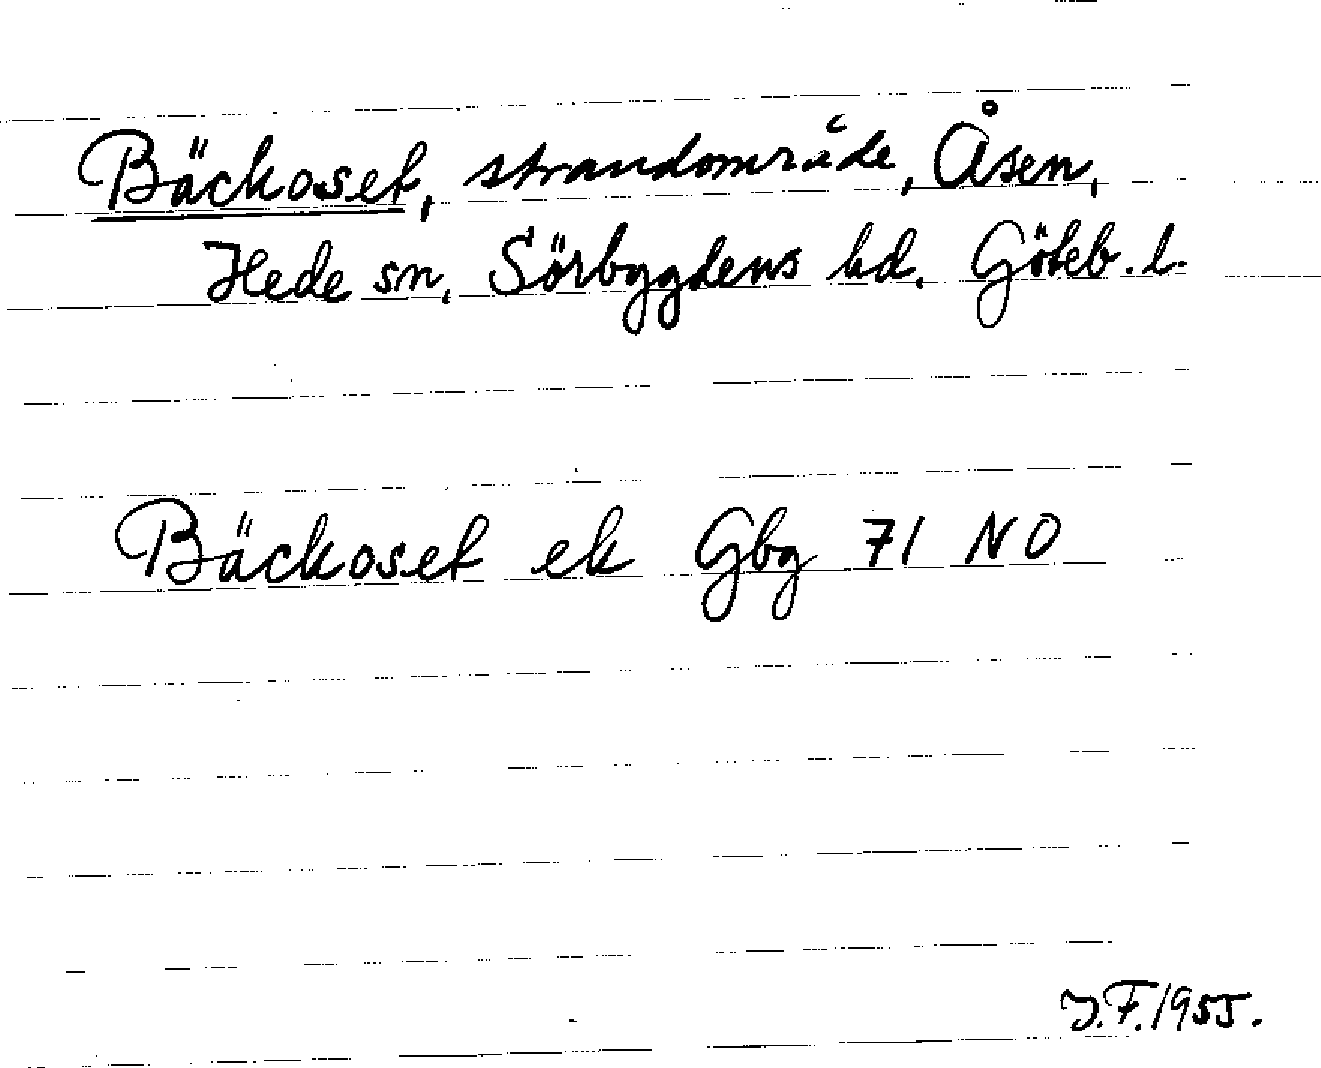 Bäckoset, strandområde, Åsen,
Hede sn. Sörbygdens hd. Göteb. l.
Bäckoset ek Gbg 71 NO
J.F. 1955.